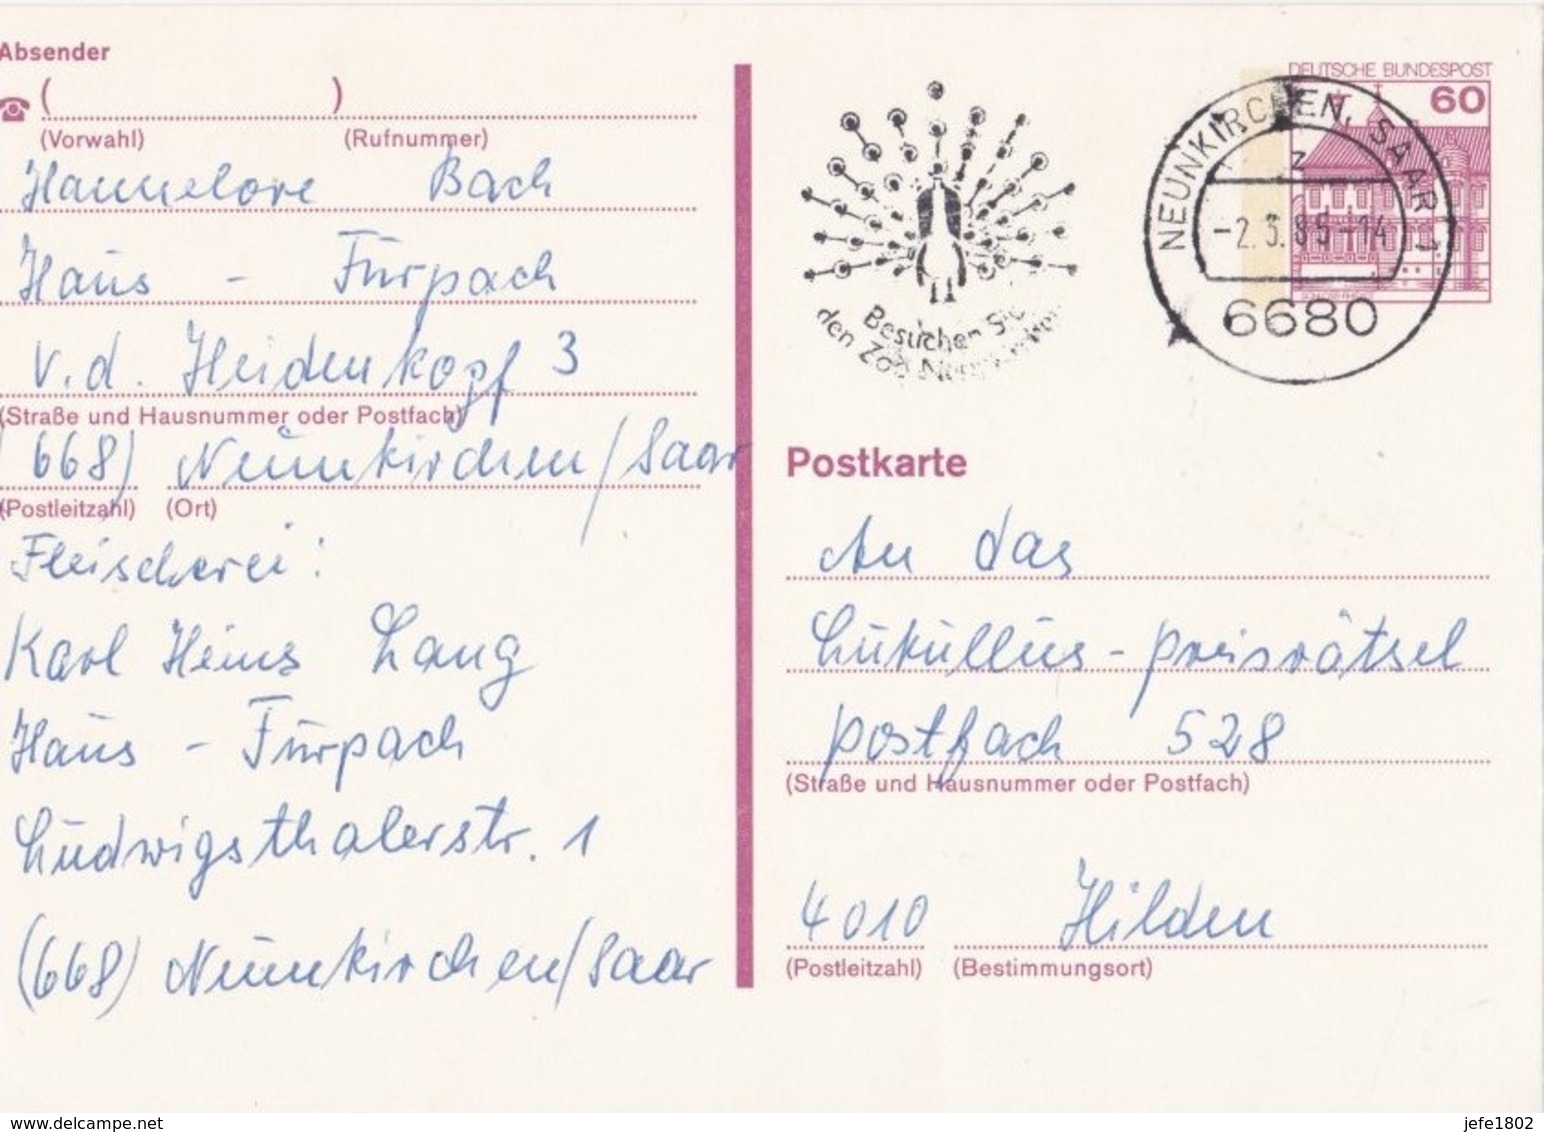 Absender
( )
(Vorwahl) (Rufnummer)
Hannelore Bach
Haus - Furpach
v.d. Heidenkopf 3
(Straße und Hausnummer oder Postfach)
668) Neunkirchen/Saar
(Postleitzahl) (Ort)
Fleischerei:
Karl Heins Lang
Haus - Furpach
Ludwigsthalerstr. 1
(668) Neunkirchen/Saar
Besuchen Sie
den Zoo
NEUNKIRCHEN, SAAR 1
z
-2.3.85-14
6680
DEUTSCHE BUNDESPOST
60
Postkarte
An das
Lukullus-preisrätsel
postfach 528
(Straße und Hausnummer oder Postfach)
4010 Hilden
(Postleitzahl) (Bestimmungsort)
www.delcampe.net
jefe1802